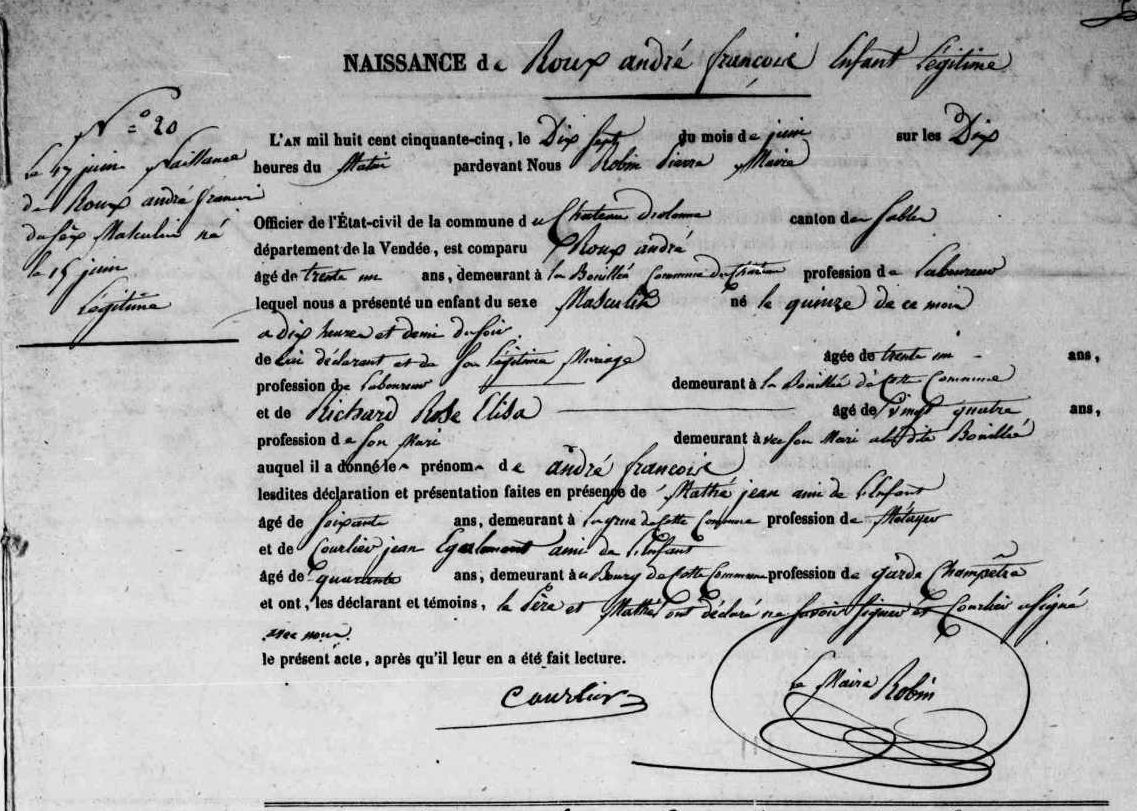 NAISSANCE de Roux andré françois Enfant Légitime
N° 20
Le 17 juin Naissance
de Roux andré françois
du sexe Masculin né
le 15 juin
Légitime
L'AN mil huit cent cinquante-cinq, le Dix Sept du mois de juin sur les Dix
heures du Matin pardevant Nous Robin Pierre Maire
Officier de l'État-civil de la commune du Chateau d'olonne canton des Sables
département de la Vendée, est comparu Roux andré
âgé de trente un ans, demeurant à la Bouillée Commune du Chateau profession de Laboureur
lequel nous a présenté un enfant du sexe Masculin né le quinze de ce mois
a dix heures et demi du soir
de lui déclarant et de son légitime Mariage âgée de trente un ans,
profession de Laboureur demeurant à la Bouillée de Cette Commune
et de Richard Rose Elisa âgé de vingt quatre ans,
profession de son Mari demeurant à avec son Mari a la dite Bouillée
auquel il a donné le prénom de andré françois
lesdites déclaration et présentation faites en présence de Mathé jean ami de l'Enfant
âgé de soixante ans, demeurant à de Cette Commune profession de Métayer
et de Courlier jean Egalement ami de l'Enfant
âgé de quarante ans, demeurant au Bourg de Cette Commune profession de garde Champêtre
et ont, les déclarant et témoins, le Père et Mathé ont déclaré ne savoir signer et Courlier a signé
avec nous.
le présent acte, après qu'il leur en a été fait lecture.
Courlier
Le Maire Robin